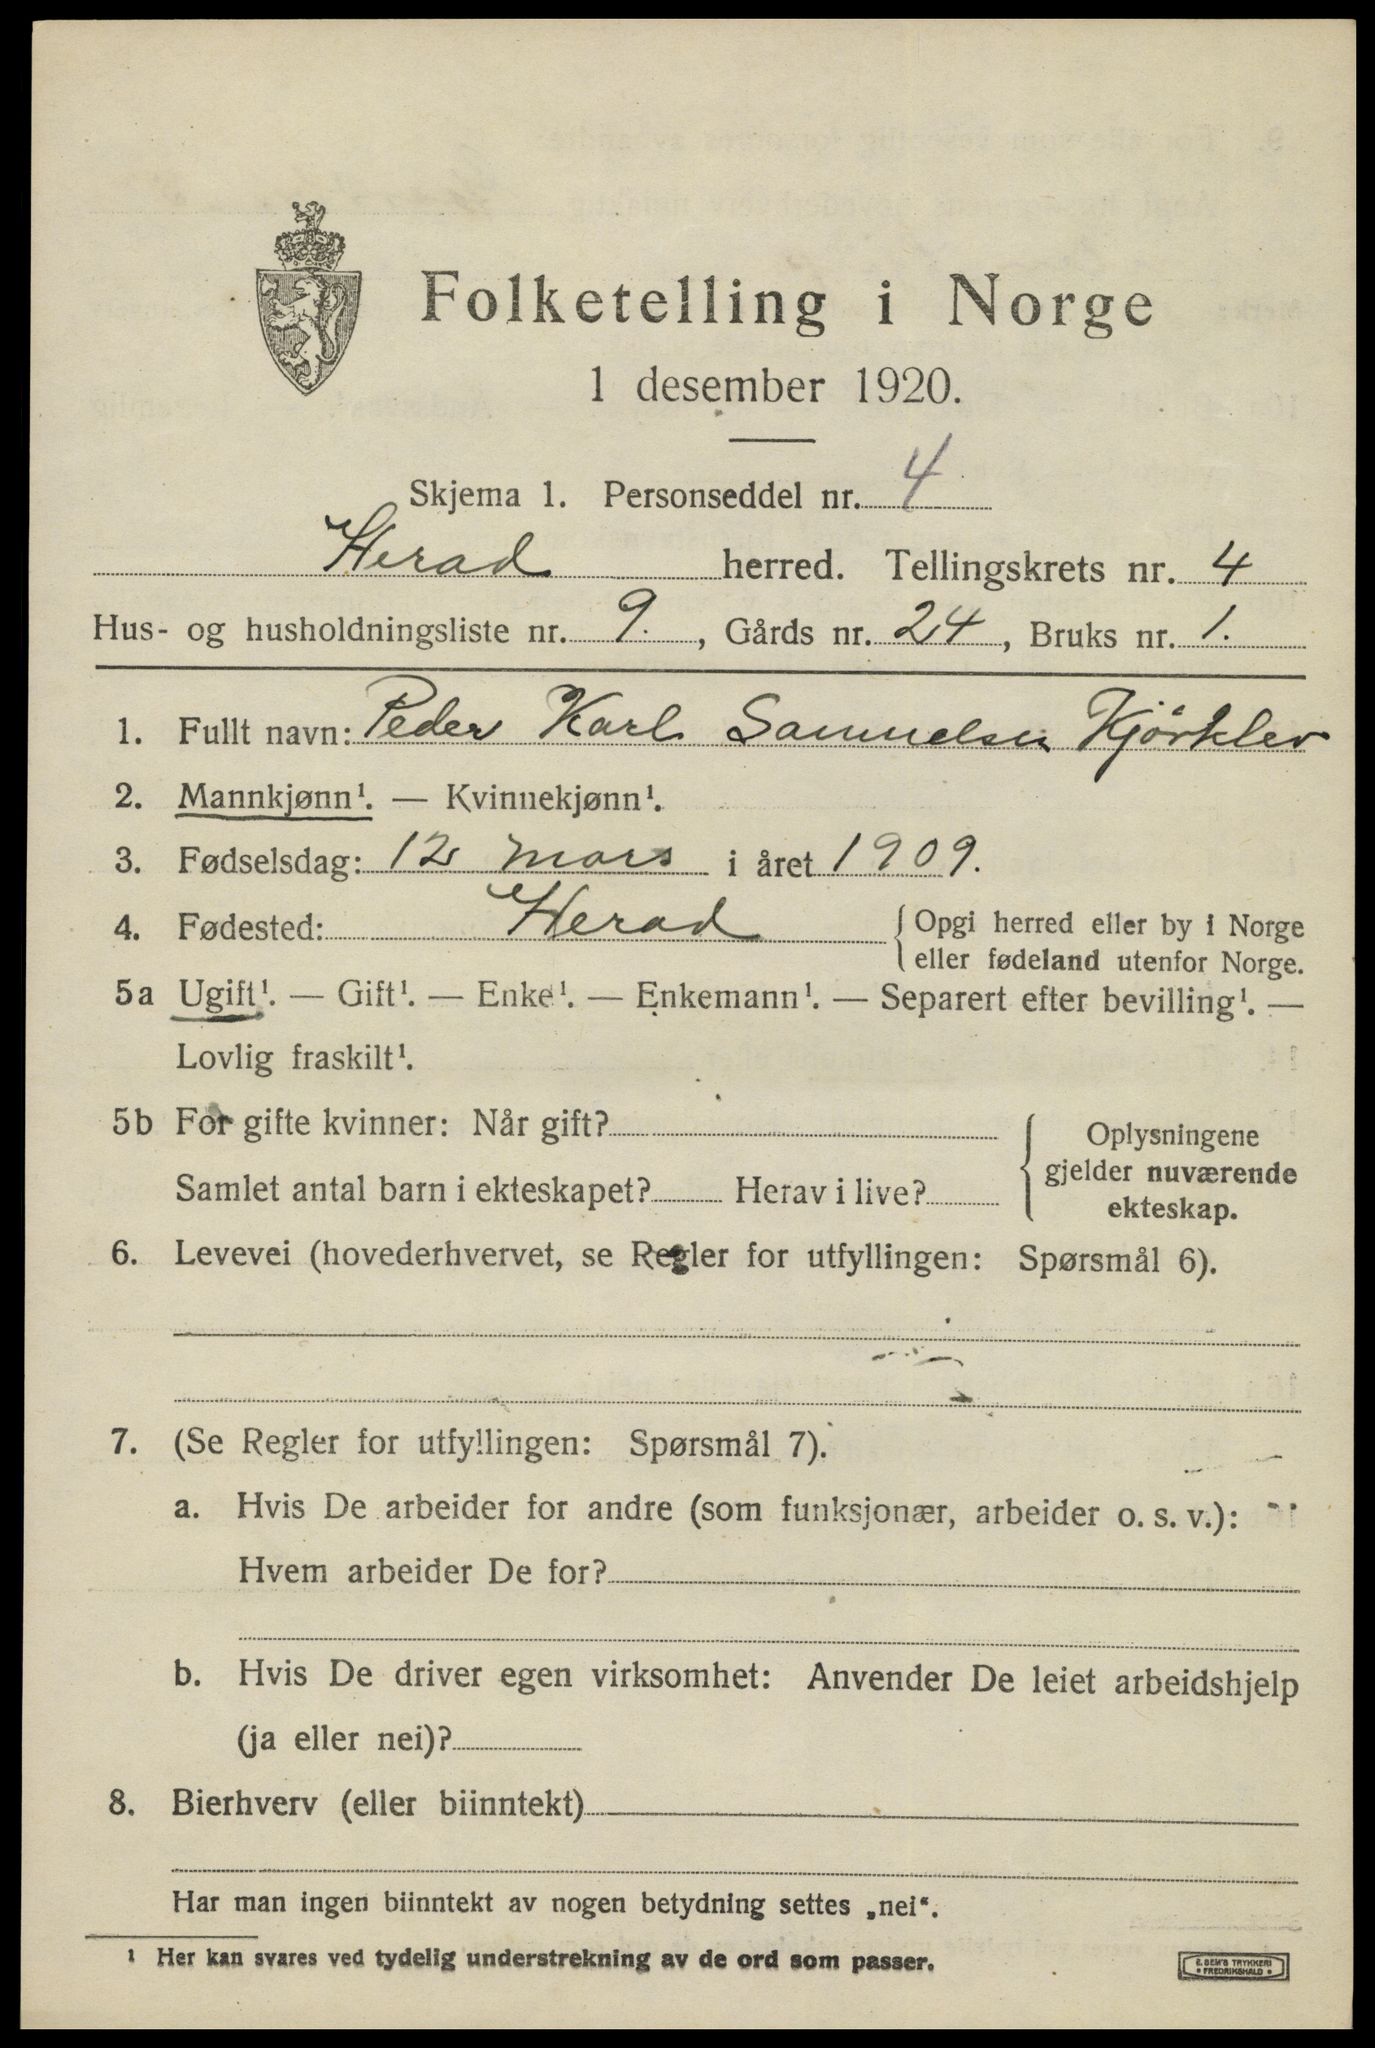 Folketelling i Norge
1 desember 1920.
Skjema 1. Personseddel nr. 4
Herad herred. Tellingskrets nr. 4
Hus- og husholdningsliste nr. 9., Gårds nr. 24, Bruks nr. 1.
1. Fullt navn: Peder Karl Samuelsen Kjörklev
2. Mannkjønn¹. — Kvinnekjønn¹.
3. Fødselsdag: 12 mars i året 1909.
4. Fødested: Herad { Opgi herred eller by i Norge
eller fødeland utenfor Norge.
5a Ugift¹. — Gift¹. — Enke¹. — Enkemann¹. — Separert efter bevilling¹. —
Lovlig fraskilt¹.
5b For gifte kvinner: Når gift?
Samlet antal barn i ekteskapet? Herav i live?
{ Oplysningene
gjelder nuværende
ekteskap.
6. Levevei (hovederhvervet, se Regler for utfyllingen: Spørsmål 6).
7. (Se Regler for utfyllingen: Spørsmål 7).
a. Hvis De arbeider for andre (som funksjonær, arbeider o. s. v.):
Hvem arbeider De for?
b. Hvis De driver egen virksomhet: Anvender De leiet arbeidshjelp
(ja eller nei)?
8. Bierhverv (eller biinntekt)
Har man ingen biinntekt av nogen betydning settes „nei“.
¹ Her kan svares ved tydelig understrekning av de ord som passer.
E. SEM'S TRYKKERI
• FREDRIKSHALD •